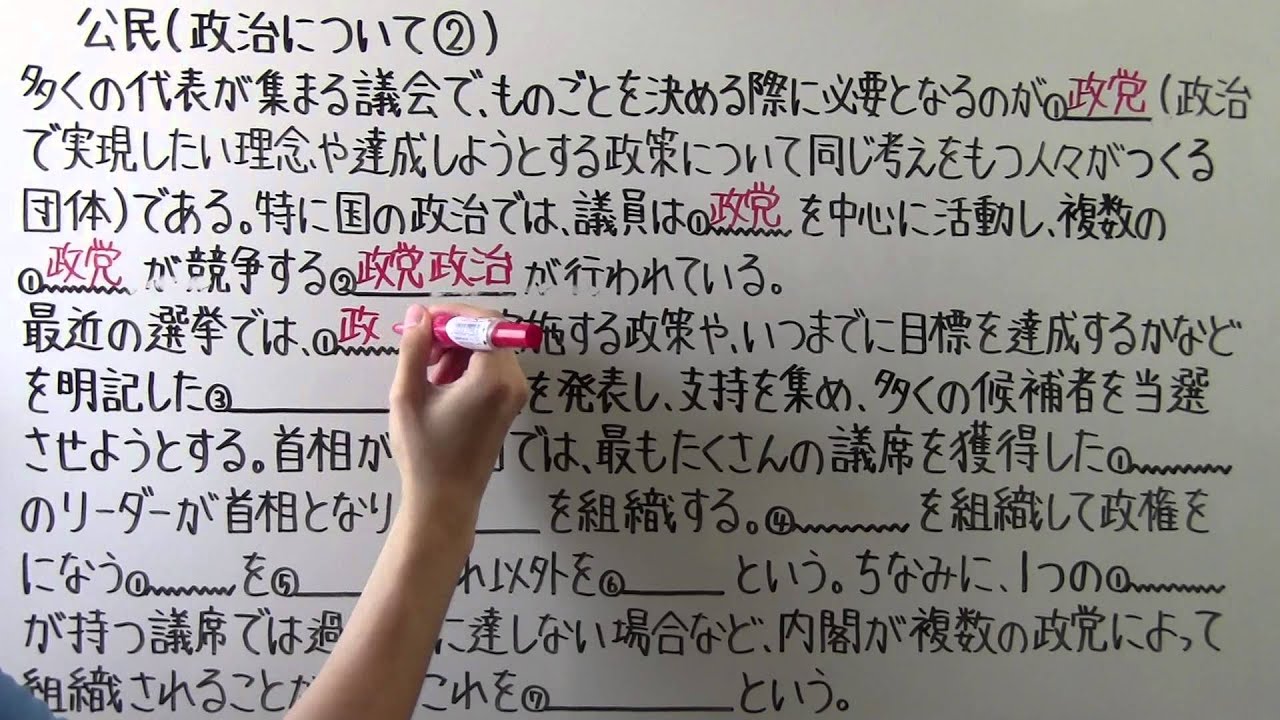 公民(政治について②)
多くの代表が集まる議会で、ものごとを決める際に必要となるのが①政党(政治
で実現したい理念、や達成しようとする政策について同じ考えをもつ人々がつくる
団体)である。特に国の政治では、議員は①政党を中心に活動し、複数の
①政党が競争する②政党政治が行われている。
最近の選挙では、①政 施する政策や、いつまでに目標を達成するかなど
を明記した③ を発表し、支持を集め、多くの候補者を当選
させようとする。首相が では、最もたくさんの議席を獲得した①
のリーダーが首相となり を組織する。④ を組織して政権を
になう①を⑤ れ以外を⑥ という。ちなみに、1つの①
が持つ議席では過 に達しない場合など、内閣が複数の政党によって
組織されることが これを⑦ という。